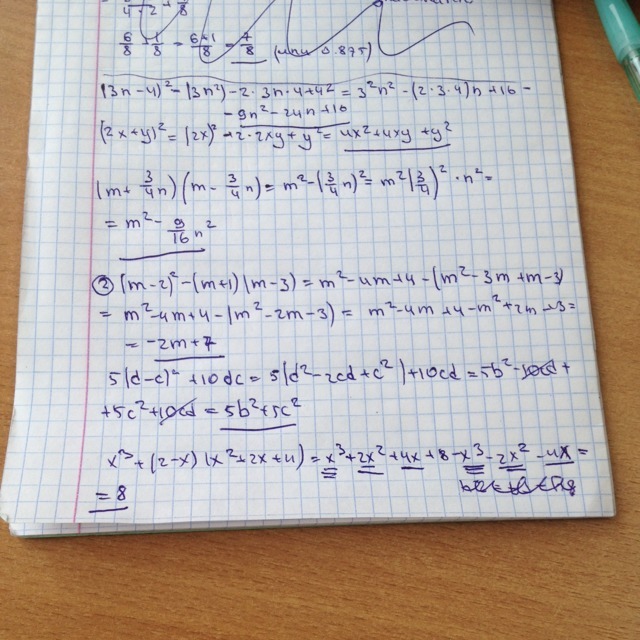 4+2 + 8
6/8 + 1/8 = 6+1/8 = 7/8 (или 0.875)
(3n-4)² = (3n²) - 2·3n·4 + 4² = 3²n² - (2·3·4)n + 16 =
= 9n² - 24n + 16
(2x+y)² = (2x)² + 2·2xy + y² = 4x² + 4xy + y²
(m + 3/4 n)(m - 3/4 n) = m² - (3/4 n)² = m² (3/4)² · n² =
= m² - 9/16 n²
② (m-2)² - (m+1)(m-3) = m² - 4m + 4 - (m² - 3m + m - 3)
= m² - 4m + 4 - (m² - 2m - 3) = m² - 4m + 4 - m² + 2m + 3 =
= -2m + 7
5(d-c)² + 10dc = 5(d² - 2cd + c²) + 10cd = 5b² - 10cd +
+ 5c² + 10cd = 5b² + 5c²
x³ + (2-x)(x² + 2x + 4) = x³ + 2x² + 4x + 8 - x³ - 2x² - 4x =
= 8